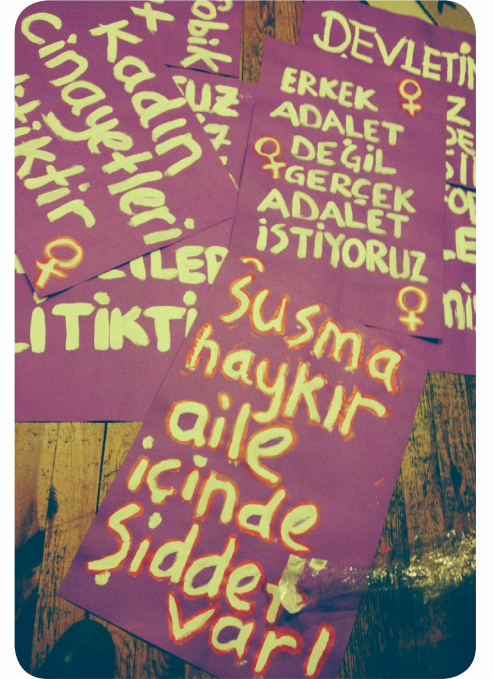 Kadın
cinayetleri
litiktir
obik
UZ
DEVLETİN
ERKEK
ADALET
DEĞİL
GERÇEK
ADALET
İSTİYORUZ
LİTİKTİ
Susma
haykır
aile
içinde
Şiddet
var!